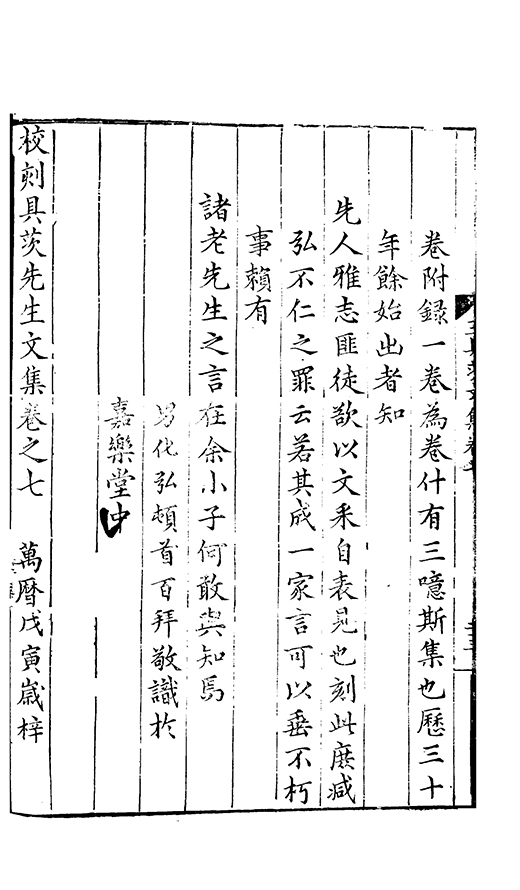 卷附錄一卷為卷什有三噫斯集也歷三十
年餘始出者知
先人雅志匪徒欲以文采自表見也刻此庶減
弘不仁之罪云若其成一家言可以垂不朽
事賴有
諸老先生之言在余小子何敢與知焉
男化弘頓首百拜敬識於
嘉樂堂中
校刻具茨先生文集卷之七　萬曆戊寅歲梓